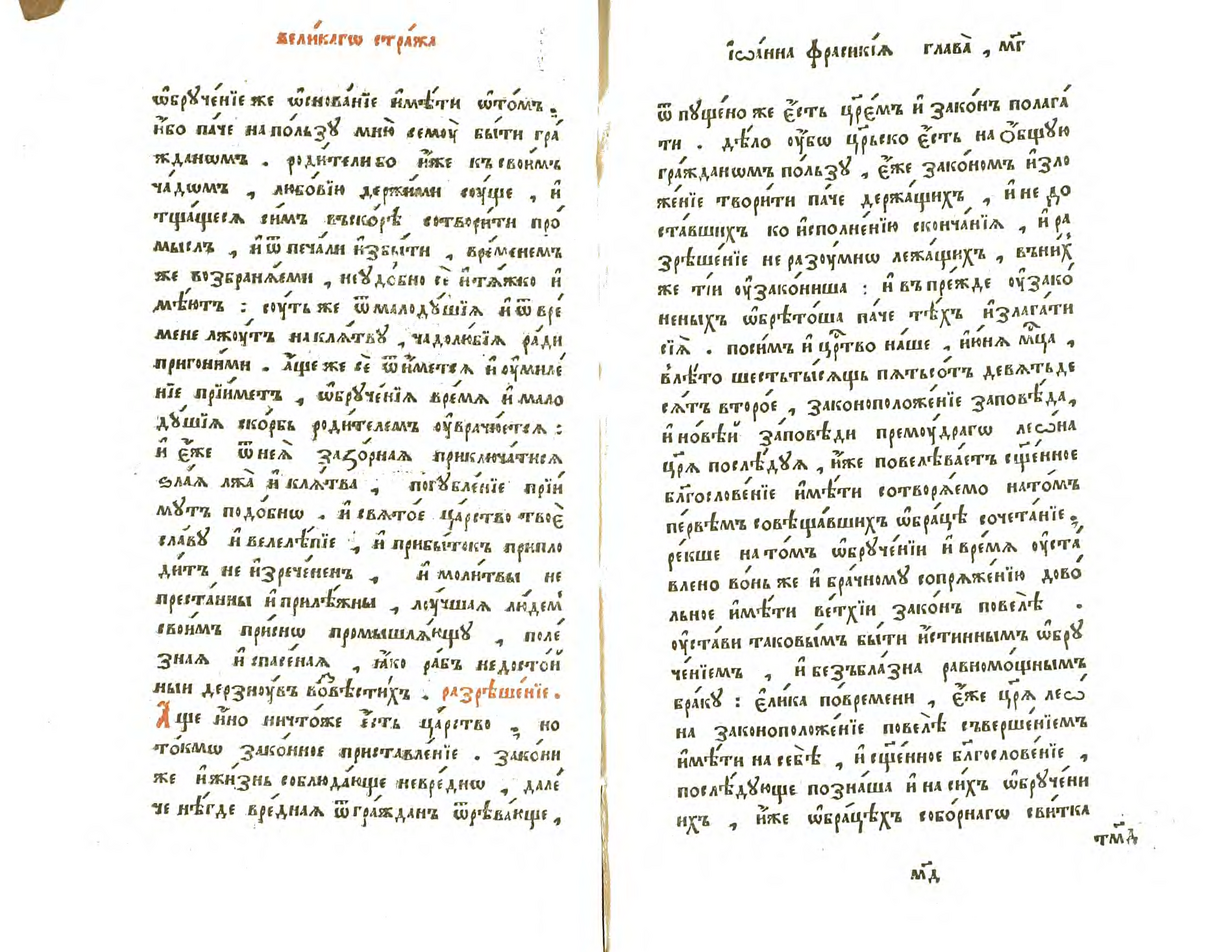 вели́кагѡ стра́жа
ѡ҆бруче́нїе же ѡ҆снова́нїе и҆мѣ́ти ѡ҆то́мъ .
и҆́бо па́че на по́льзу мню̀ семоу̀ бы́ти гра́
жданѡмъ . роди́тели бо и҆́же къ свои́мъ
ча́дѡмъ , любо́вїю держи́ми соу́ще , и҆
тща́щеся си́мъ въско́рѣ сотвори́ти про́
мыслъ , и҆ ѿ печа́ли и҆збы́ти , вре́менемъ
же возбраня́еми , неудо́бно сѐ и҆ тя́жко и҆
мѣ́ютъ : соу́ть же ѿ малодꙋ́шїѧ и҆ ѿ вре́
мене лжоу́тъ на клѧ́твꙋ , чадолю́бїѧ ра́ди
пригони́ми . а҆́ще же сѐ ѿи́метсѧ и҆ оу҆миле́
нїе прїи́метъ , ѡ҆брꙋче́нїѧ вре́мѧ и҆ мало
дꙋ́шїѧ ско́рбь роди́телемъ оу҆врачю́етсѧ :
и҆ є҆́же ѿ неѧ̀ зазо́рнаѧ приключа́тисѧ
ѕла́ѧ лжа̀ и҆ клѧ́тва , погꙋбле́нїе прїи́
мꙋтъ подо́бнѡ . и҆ свѧто́е ца́рство твоѐ
сла́вꙋ и҆ велелѣ́пїе , и҆ прибы́токъ припло
ди́тъ не и҆зрече́ненъ , и҆ моли́твы не
преста́нны и҆ прилѣ́жны , лоу́чшаѧ лю́демъ
свои́мъ при́снѡ промышлѧ́ющꙋ , поле́
знаѧ и҆ спасе́наѧ , ꙗ҆́ко ра́бъ недосто́й
ныи дерзноу́въ во́вѣсти́хъ . разрѣше́нїе .
А҆́ще и҆́но ничто́же є҆́сть ца́рство , но
то́кмѡ зако́нное приставле́нїе . зако́ни
же и҆ жи́знь соблюда́юще невре́днѡ , дале́
че нѣ́где вре́днаѧ ѿ гра́жданъ ѿрѣва́юще ,
і҆ѡа́нна фраски́їѧ глава̀ , м҃г
ѿпꙋще́но же є҆́сть цр҃е́мъ и҆ зако́нъ полага́
ти . дѣ́ло оу҆́бѡ цр҃ьско є҆́сть на ѻ҆́бщꙋю
гра́жданѡмъ по́льзꙋ , є҆́же зако́номъ и҆зло
же́нїе твори́ти па́че держа́щихъ , и҆ не до
ста́вшихъ ко и҆сполне́нїю сконча́нїѧ , и҆ ра
зрѣше́нїе не разоу́мнѡ лежа́щихъ , въ ни́х
же ті́и оу҆зако́ниша : и҆ въ пре́жде оу҆зако́
неныхъ ѡ҆брѣто́ша па́че тѣ́хъ и҆злага́ти
сїѧ̀ . поси́мъ и҆ цр҃тво на́ше , и҆ю́нѧ мц҃а ,
в лѣ́то шестьты́сѧщь пѧтьсо́тъ девѧтьде
сѧ́тъ второ́е , законоположе́нїе заповѣ́да ,
и҆ но́вѣй за́повѣди премоу́драгѡ леѡ́на
цр҃ѧ̀ послѣ́дꙋѧ , и҆́же повелѣва́етъ сщ҃е́нное
бл҃гослове́нїе и҆мѣ́ти сотворѧ́емо на то́мъ
пе́рвѣмъ совѣща́вшихъ ѡ҆бра́цѣ сочета́нїе ,
ре́кше на то́мъ ѡ҆брꙋче́нїи и҆ вре́мѧ оу҆ста́
влено во́нь же и҆ бра́чномꙋ сопрѧже́нїю дово́
льное и҆мѣ́ти ве́тхїи зако́нъ повелѣ̀ .
оу҆ста́ви таковы́мъ бы́ти и҆́стиннымъ ѡ҆брꙋ
че́нїемъ , и҆ безъбла́зна равномо́щнымъ
бра́кꙋ : є҆ли́ка по́времени , є҆́же цр҃ѧ̀ леѡ́
на законоположе́нїе повелѣ̀ съверше́нїемъ
и҆мѣ́ти на себѣ̀ , и҆ сщ҃е́нное бл҃гослове́нїе ,
послѣ́дꙋюще позна́ша и҆ на си́хъ ѡ҆брꙋче́ни
ихъ , и҆́же ѡ҆бра́цѣхъ собо́рнагѡ сви́тка
м҃д